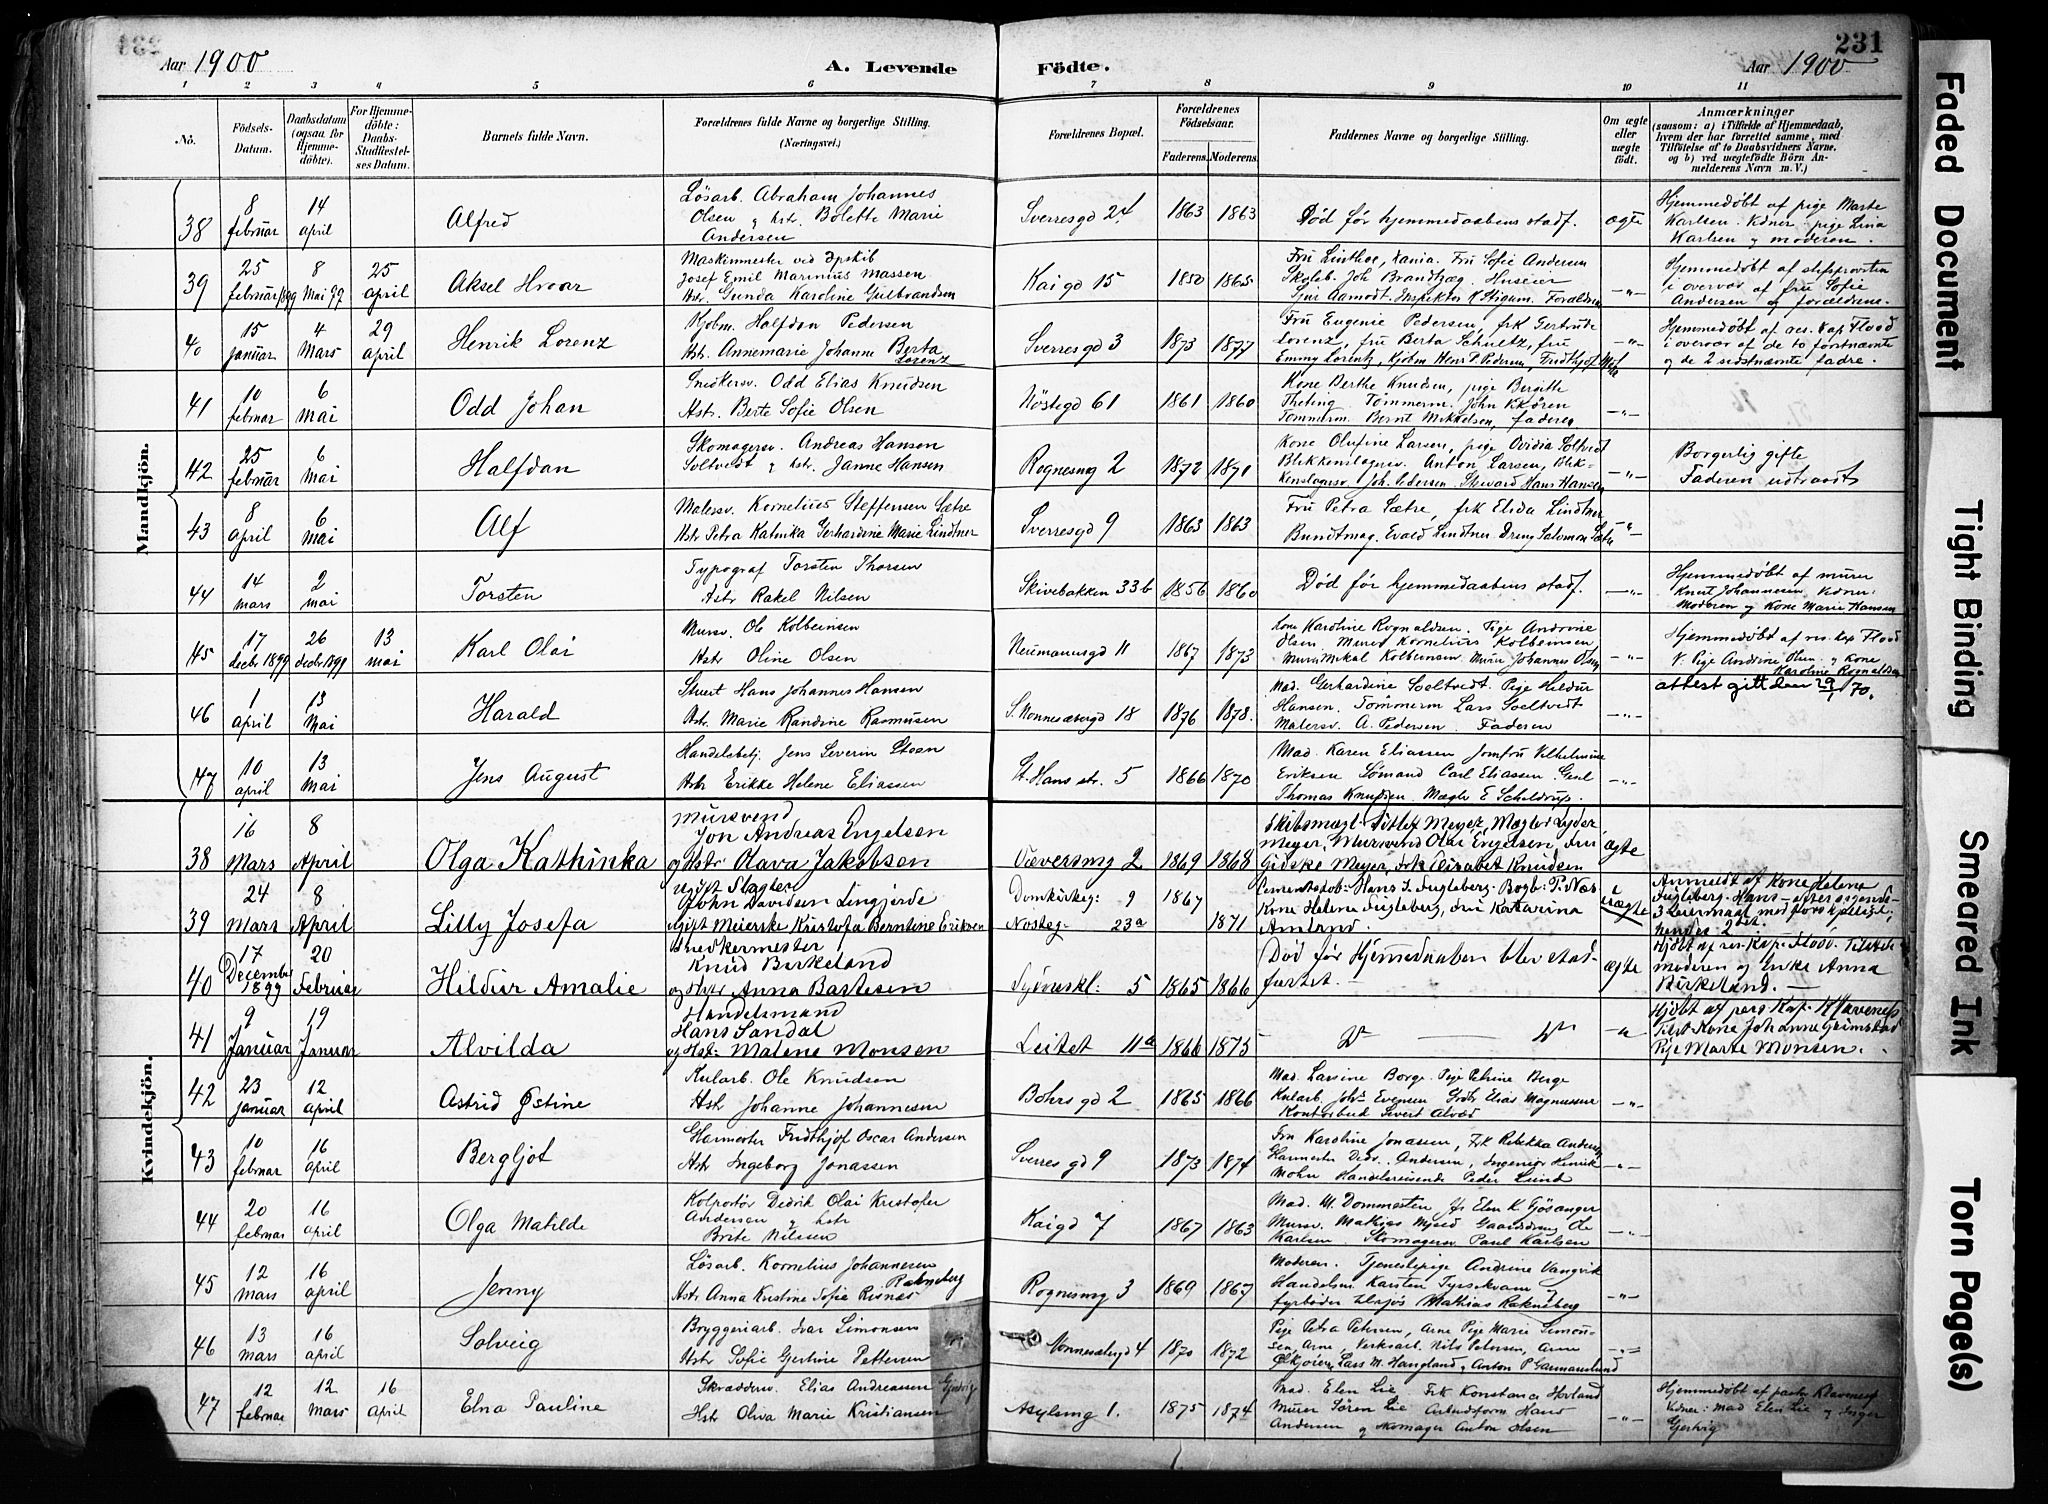 231
Aar 1900
A. Levende Födte.
Aar 1900
1 2 3 4 5 6 7 8 9 10 11
No.
Födsels-Datum.
Daabsdatum (ogsaa for Hjemmedöbte).
For Hjemmedöbte: Daabs-Stadfæstelses Datum.
Barnets fulde Navn.
Forældrenes fulde Navne og borgerlige Stilling. (Næringsvei.)
Forældrenes Bopæl.
Forældrenes Födselsaar. Faderens. Moderens.
Faddernes Navne og borgerlige Stilling.
Om ægte eller uægte födt.
Anmærkninger (saasom: a) i Tilfælde af Hjemmedaab, hvem der har forrettet samme, med Tilföielse af to Daabsvidners Navne, og b) ved uægtefödte Börn Anmelderens Navn m. V.)
Mandkjön.
38 8 februar 14 april Alfred Løsarb. Abraham Johannes Olsen og hstr. Bolette Marie Andersen Sverresgd 24 1863 1863 Død før hjemmedaabens stadf. ægte Hjemmedøbt af pige Marte Karlsen. Vidner: pige Lina Karlsen og moderen.
39 25 februar 1899 8 Mai 99 25 april Aksel Hroar Maskinmester ved Dpskib Josef Emil Marinius Massen Hstr. Gunda Karoline Gulbrandsen Kaigd 15 1850 1865 Fru Sofie Andersen Skoleb. Joh Brandtzæg. Aamodt. Inspektør Forældrene -"- Hjemmedøbt af stiftsprovsten i overvær af fru Sofie Andersen og forældrene.
40 15 januar 4 Mars 29 april Henrik Lorenz Kjøbm. Halfdan Pedersen Hstr. Annemarie Johanne Berta Lorenz Sverresgd 3 1873 1877 Fru Eugenie Pedersen, frk Gertrude Lorenz, fru Berta Schultz, fru Emmy Lorentz, Kjøbm Henr P Pedersen, Fridthjof -"- Hjemmedøbt af res. kap Flood i overvær af de to førstnævnte og de 2 sidstnævnte fadre.
41 10 februar 6 Mai Odd Johan Snedkersv. Odd Elias Knudsen Hstr. Berte Sofie Olsen Nöstegd 61 1861 1860 Kone Berthe Knudsen, pige Bergitte Theting. Tömmerm. John Tömmerm. Bernt Mikkelsen, faderen -"-
42 25 februar 6 Mai Halfdan Skomagersv. Andreas Hansen Soltvedt og hstr. Janne Hansen Rognesmg 2 1872 1871 Kone Olufine Larsen, pige Ovidia Soltvedt Blikkenslagersv. Anton Larsen, Blikkenslagersv. Joh. Pedersen. Steward Hans Hansen -"- Borgerlig gifte Faderen udtraadt
43 8 april 6 mai Alf Malersv. Kornelius Steffensen Sætre Hstr Petra Katinka Gerhardine Marie Lindtner Sverresgd 9 1863 1863 Fru Petra Sætre, frk Elida Lindtner Bundtmag. Evald Lindtner. Dreng Salomon Sætre -"-
44 14 mars 2 mai Torsten Typograf Torsten Thorsen Hstr Rakel Nilsen Skivebakken 33b 1856 1860 Død før hjemmedaabens stadf. -"- Hjemmedøbt af murer Knut Johannesen. Vidner: Modren og Kone Marie Hansen
45 17 decbr 1899 26 decbr 1899 13 mai Karl Olai Mursv. Ole Kolbeinsen Hstr Oline Olsen Neumannsgd 11 1867 1873 Kone Karoline Rognaldsen. Pige Andrine Olsen Murer Kornelius Kolbeinsen Murer Mikal Kolbeinsen. Murer Johannes Olsen -"- Hjemmedøbt af res. kap Flood V. Pige Andrine Olsen og Kone Karoline Rognaldsen
46 1 april 13 Mai Harald Stuert Hans Johannes Hansen Hstr. Marie Randine Rasmusen S. Nonnesætergd 18 1876 1878. Mad. Gerhardine Soltvedt. Pige Hildur Hansen. Tömmerm Lars Soeltvedt Malersv. A. Pedersen. Faderen -"- attest gitt den 29/ 70.
47 10 april 13 Mai Jens August Handelsbetj. Jens Severin Steen Hstr Erikke Helene Eliassen St. Hans str. 5 1866 1870 Mad. Karen Eliassen Jomfru Vilhelmine Eriksen Sömand Carl Eliassen. Thomas Knudsen. Mægler E Scheldrup. -"-
Kvindekjön.
38 16 Mars 8 April Olga Kathinka Mursvend Jon Andreas Engelsen og Hstr Olava Jakobsen Væversmg 2 1869 1868 Skibsmægl. Ditlef Meyer, Mægler Lyder Meyer, Mursvend Olai Engelsen, Fru Gidske Meyer, Frk Elisabet Knudsen ægte
39 24 Mars 8 April Lilly Josefa Ugift Slagter John Davidsen Lingjerde Ugift Meierske Kristofa Berntine Eriksen Domkirkeg: 9 Nosteg: 23a 1867 1871 Hans S. Fugleberg. Bogb: P. Næs Kone Helene Fugleberg, Fru Katarina Amlund. uægte Anmeldt af Kone Helene Fugleberg. Hans efter sigende 3 Leiermaal med forskjellige, hendes 2det.
40 17 December 1899 20 Februar Hildur Amalie Snedkermester Knud Birkeland og Hstr Anna Bartesen Sydneskl: 5 1865 1866 Død før Hjemmedaaben blev stadfæstet. ægte Hjdbt af res. Kap. Flood. Tilstede moderen og Enke Anna Birkeland.
41 9 Januar 19 Januar Alvilda Handelsmand Hans Sandal og Hstr: Malene Monsen Leitet 11a 1866 1875 -"- Hjdbt af pers Kap. Klaveness Tilst. Kone Johanne Grimstad Pige Marte Monsen.
42 23 januar 12 april Astrid Østine Kularb. Ole Knudsen Hstr Johanne Johannesen Bohrsgd 2 1865 1866 Mad. Larsine Borge. Pige Petrine Berge Kularb. Johs Evensen Elias Magnussen Kontorbud Sivert Alvæd -"-
43 10 februar 16 april Bergljot Garmester Fridthjof Oscar Andersen Hstr Ingeborg Jonassen Sverresgd 9 1873 1874 Fru Karoline Jonassen, Frk Rebekka Andersen Garmester Didr. Andersen, Ingeniør Henrik Mohn Handelsreisende Peder Lund -"-
44 20 februar 16 april Olga Matilde Kolportør Didrik Olai Kristofer Andersen og hstr Brite Nilssen Kaigd 7 1867 1863 Mad. M. Dommersten Jfr Elen K Gjøsanger Mursv. Mathias Myed Gaardsdreng Ole Karlsen. Skomagersv. Paul Karlsen -"-
45 12 mars 16 april Jenny Løsarb. Kornelius Johannesen Rakneberg Hstr. Anna Kristine Sofie Risnes Rognesmg 3 1869 1867 Moderen. Tjenestepige Andrine Vangvik Handelsm Karsten Tyssekvam og fyrbøder Mathias Rakneberg -"-
46 13 mars 16 april Solveig Bryggeriarb. Ivar Simonsen Hstr Sofie Gjertine Pettersen Nonnesætergd 4 1870 1872 Pige Petra Petersen, Arne Pige Marie Simonsen, Arne, Verksarb. Nils Petersen, Arne Ølkjører Lars M. Haugland og Anton P Garmannslund -"-
47 12 februar 12 mars 16 april Elna Pauline Skræddersv. Elias Andreassen Gjertvig Hstr Oliva Marie Kristiansen Asylsmg 1. 1875 1874 Mad. Elen Lie Frk Konstance Hovland Murer Søren Lie Arbeidsform Hans Andersen og Skomager Anton Olsen -"- Hjemmedøbt af pastor Klaveness Vidner: mad Elen Lie og Inger Gjertvig
Faded Document
Tight Binding
Smeared Ink
Torn Page(s)